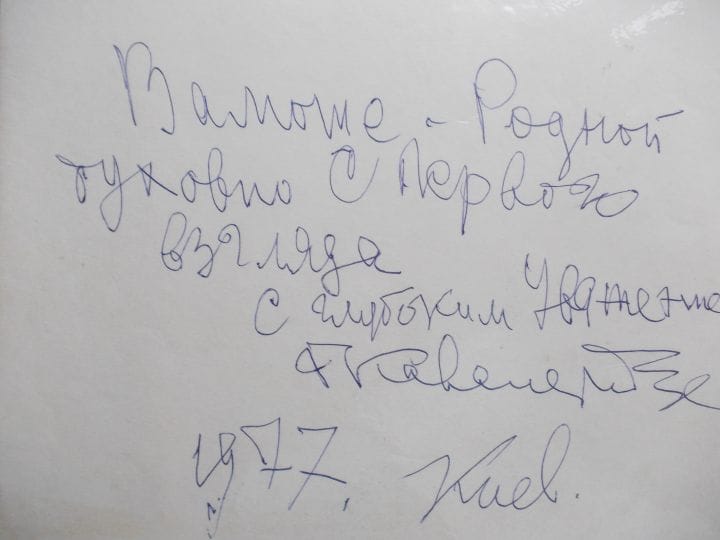 - Родной
духовно С Первого
взгляда
с глубоким Уважение
Кавалеридзе
1977 г. Киев.